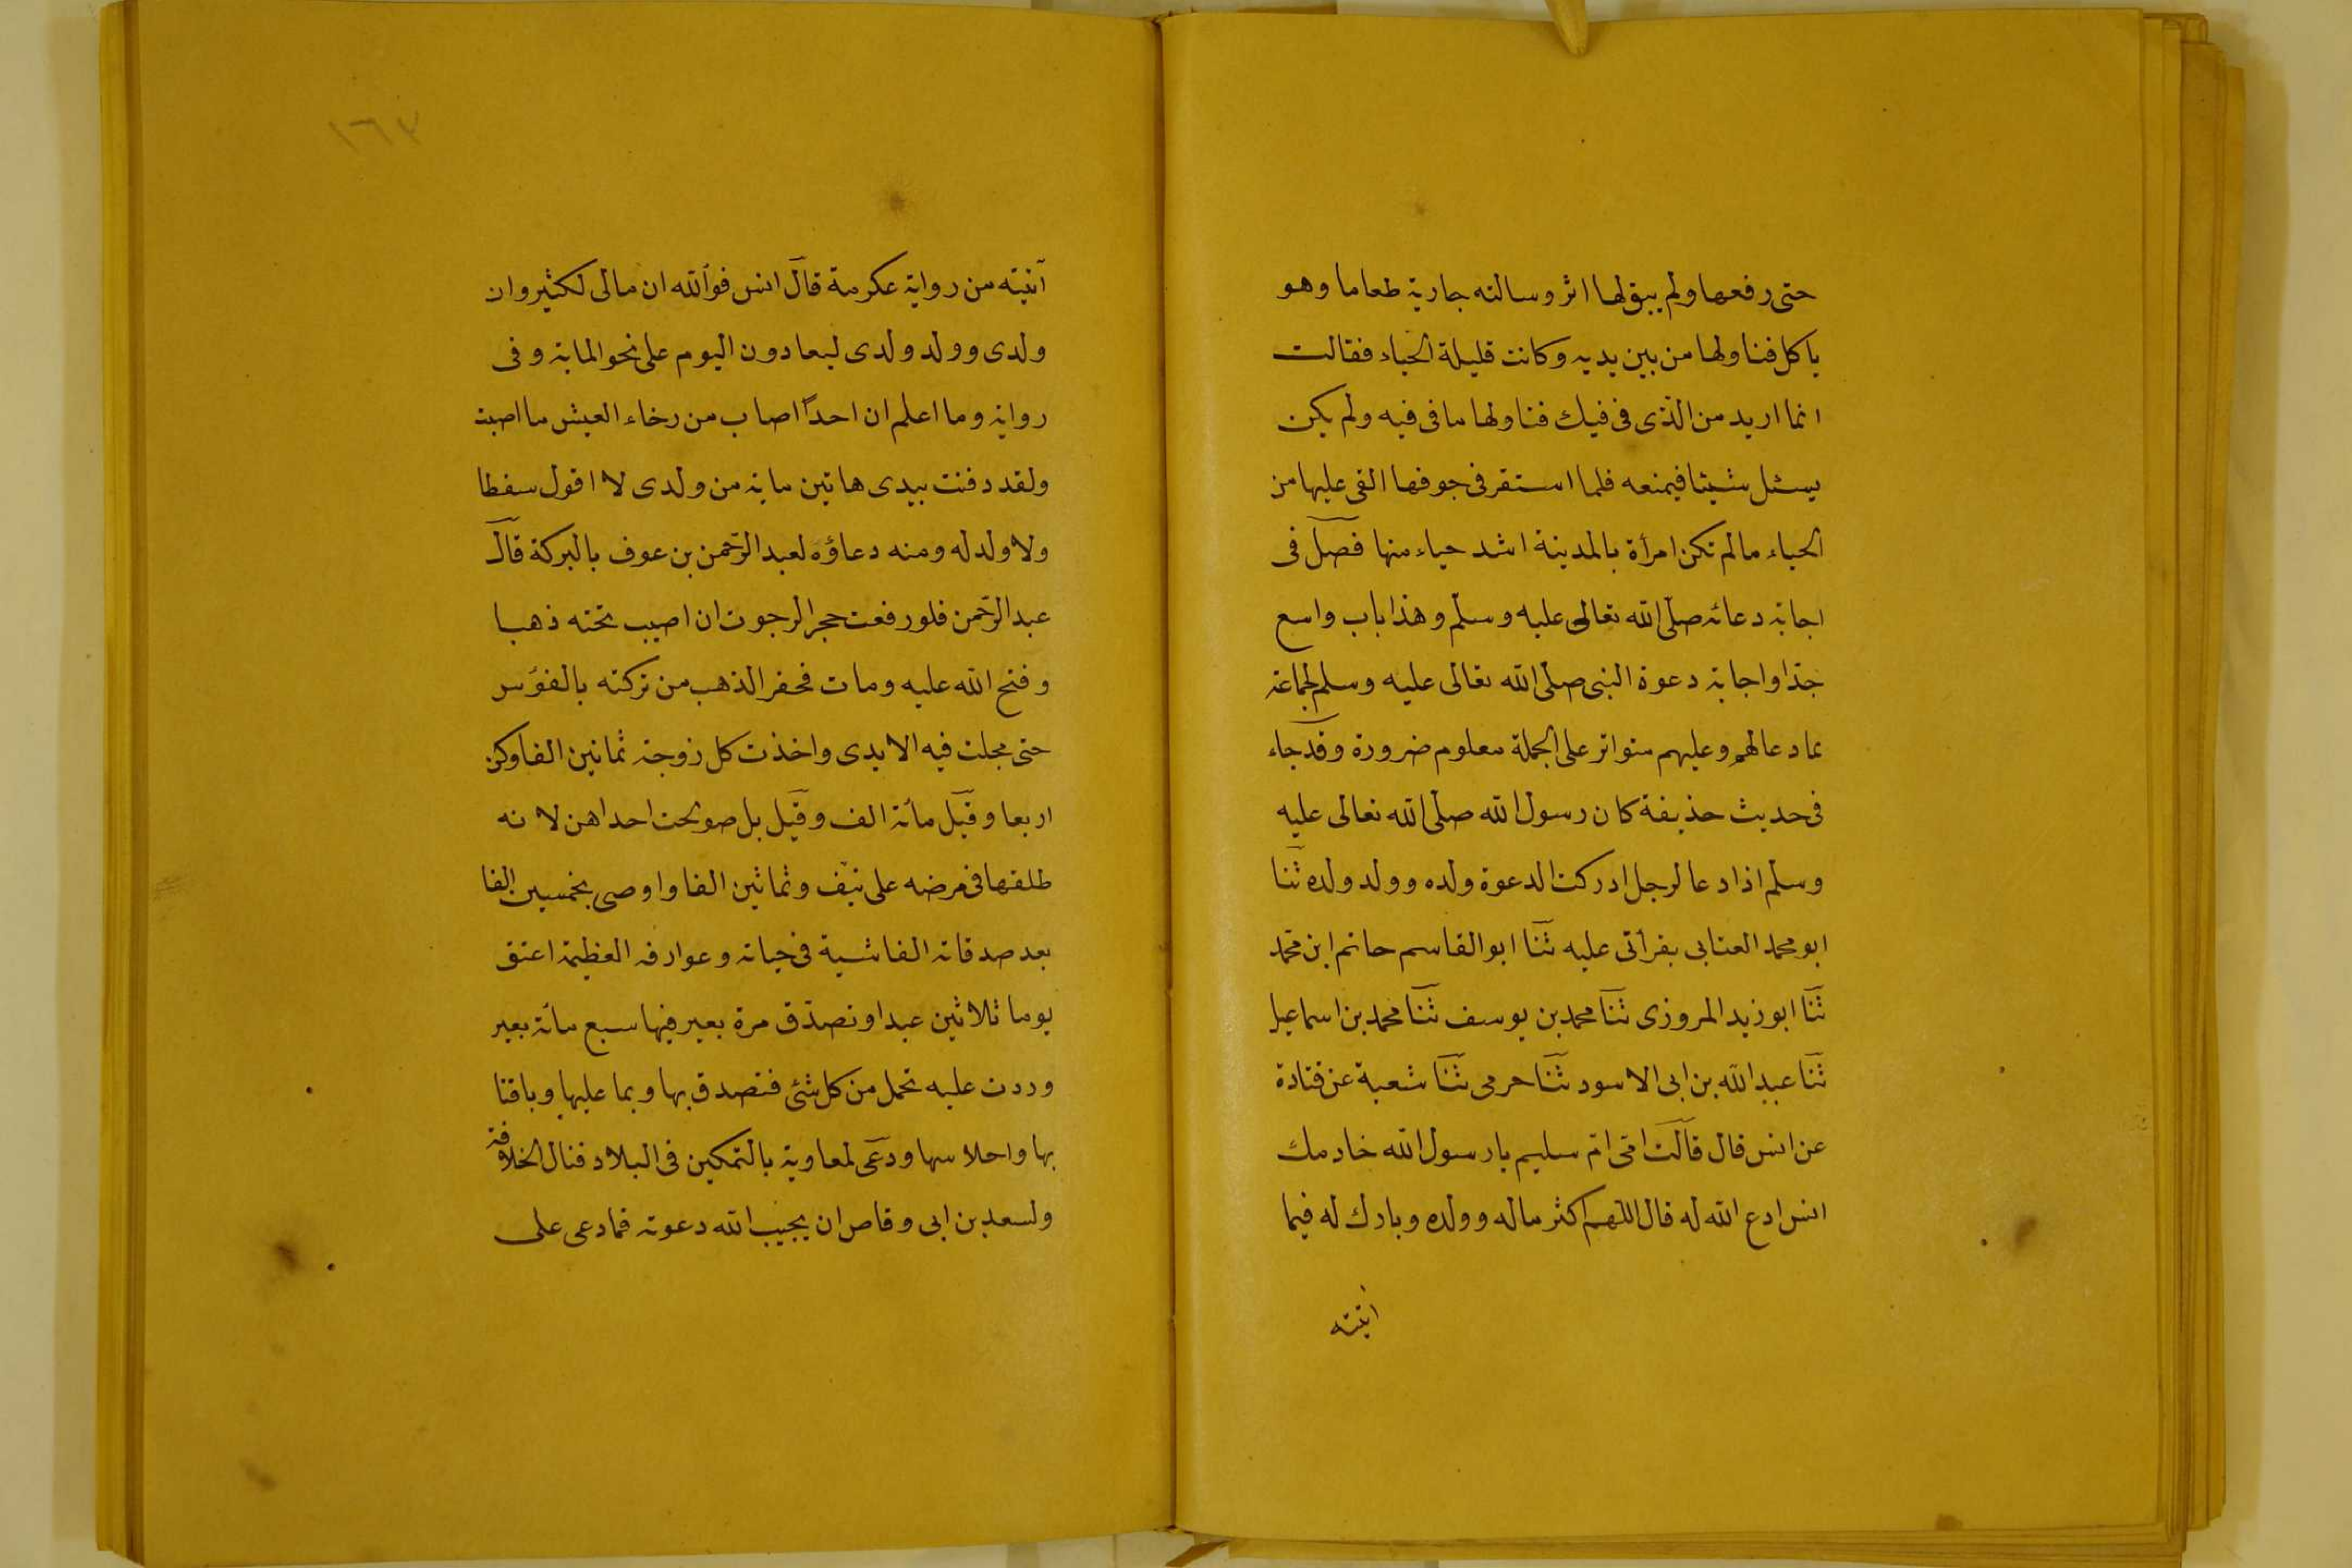 حتى رفعها ولم يبق لها اثر وسالته جارية طعاما وهو
ياكل فناولها من بين يديه وكانت قليلة الحياء فقالت
انما اريد من الذى فى فيك فناولها ما فى فيه ولم يكن
يسئل شيئا فيمنعه فلما استقر فى جوفها القى عليها من
الحياء ما لم تكن امرأة بالمدينة اشد حياء منها فصل فى
اجابة دعائه صلى الله تعالى عليه وسلم وهذا باب واسع
جدا واجابة دعوة النبى صلى الله تعالى عليه وسلم لجماعة
بما دعا لهم وعليهم متواتر على الجملة معلوم ضرورة وقد جاء
فى حديث حذيفة كان رسول الله صلى الله تعالى عليه
وسلم اذا دعا لرجل ادركت الدعوة ولده وولد ولده ثنا
ابو محمد العتابى بقرأتى عليه ثنا ابو القاسم حاتم ابن محمد
ثنا ابو زيد المروزى ثنا محمد بن يوسف ثنا محمد بن اسماعيل
ثنا عبد الله بن ابى الاسود ثنا حرمى ثنا شعبة عن قتادة
عن انس قال قالت امى ام سليم يا رسول الله خادمك
انس ادع الله له قال اللهم اكثر ماله وولده وبارك له فيما
اتيته
١٦٣
آتيته من رواية عكرمة قال انس فوالله ان مالى لكثير وان
ولدى وولد ولدى ليعادون اليوم على نحو الماية وفى
رواية وما اعلم ان احدًا اصاب من رخاء العيش ما اصبت
ولقد دفنت بيدى هاتين ماية من ولدى لا اقول سقطا
ولا ولد له ومنه دعاؤه لعبد الرحمن بن عوف بالبركة قال
عبد الرحمن فلو رفعت حجرا لرجوت ان اصيب تحته ذهبا
وفتح الله عليه ومات فحفر الذهب من تركته بالفؤس
حتى مجلت فيه الايدى واخذت كل زوجة ثمانين الفا وكن
اربعا وقيل مأته الف وقيل بل صولحت احداهن لانه
طلقها فى مرضه على نيف وثمانين الفا واوصى بخمسين الفا
بعد صدقاته الفاشية فى حياته وعوارفه العظيمة اعتق
يوما ثلاثين عبدا وتصدق مرة بعير فيها سبع مأته بعير
وردت عليه تحمل من كل شئ فتصدق بها وبما عليها وباقتا
بها واحلاسها ودعى لمعاوية بالتمكين فى البلاد فنال الخلافة
ولسعد بن ابى وقاص ان يجيب الله دعوته فما دعى على